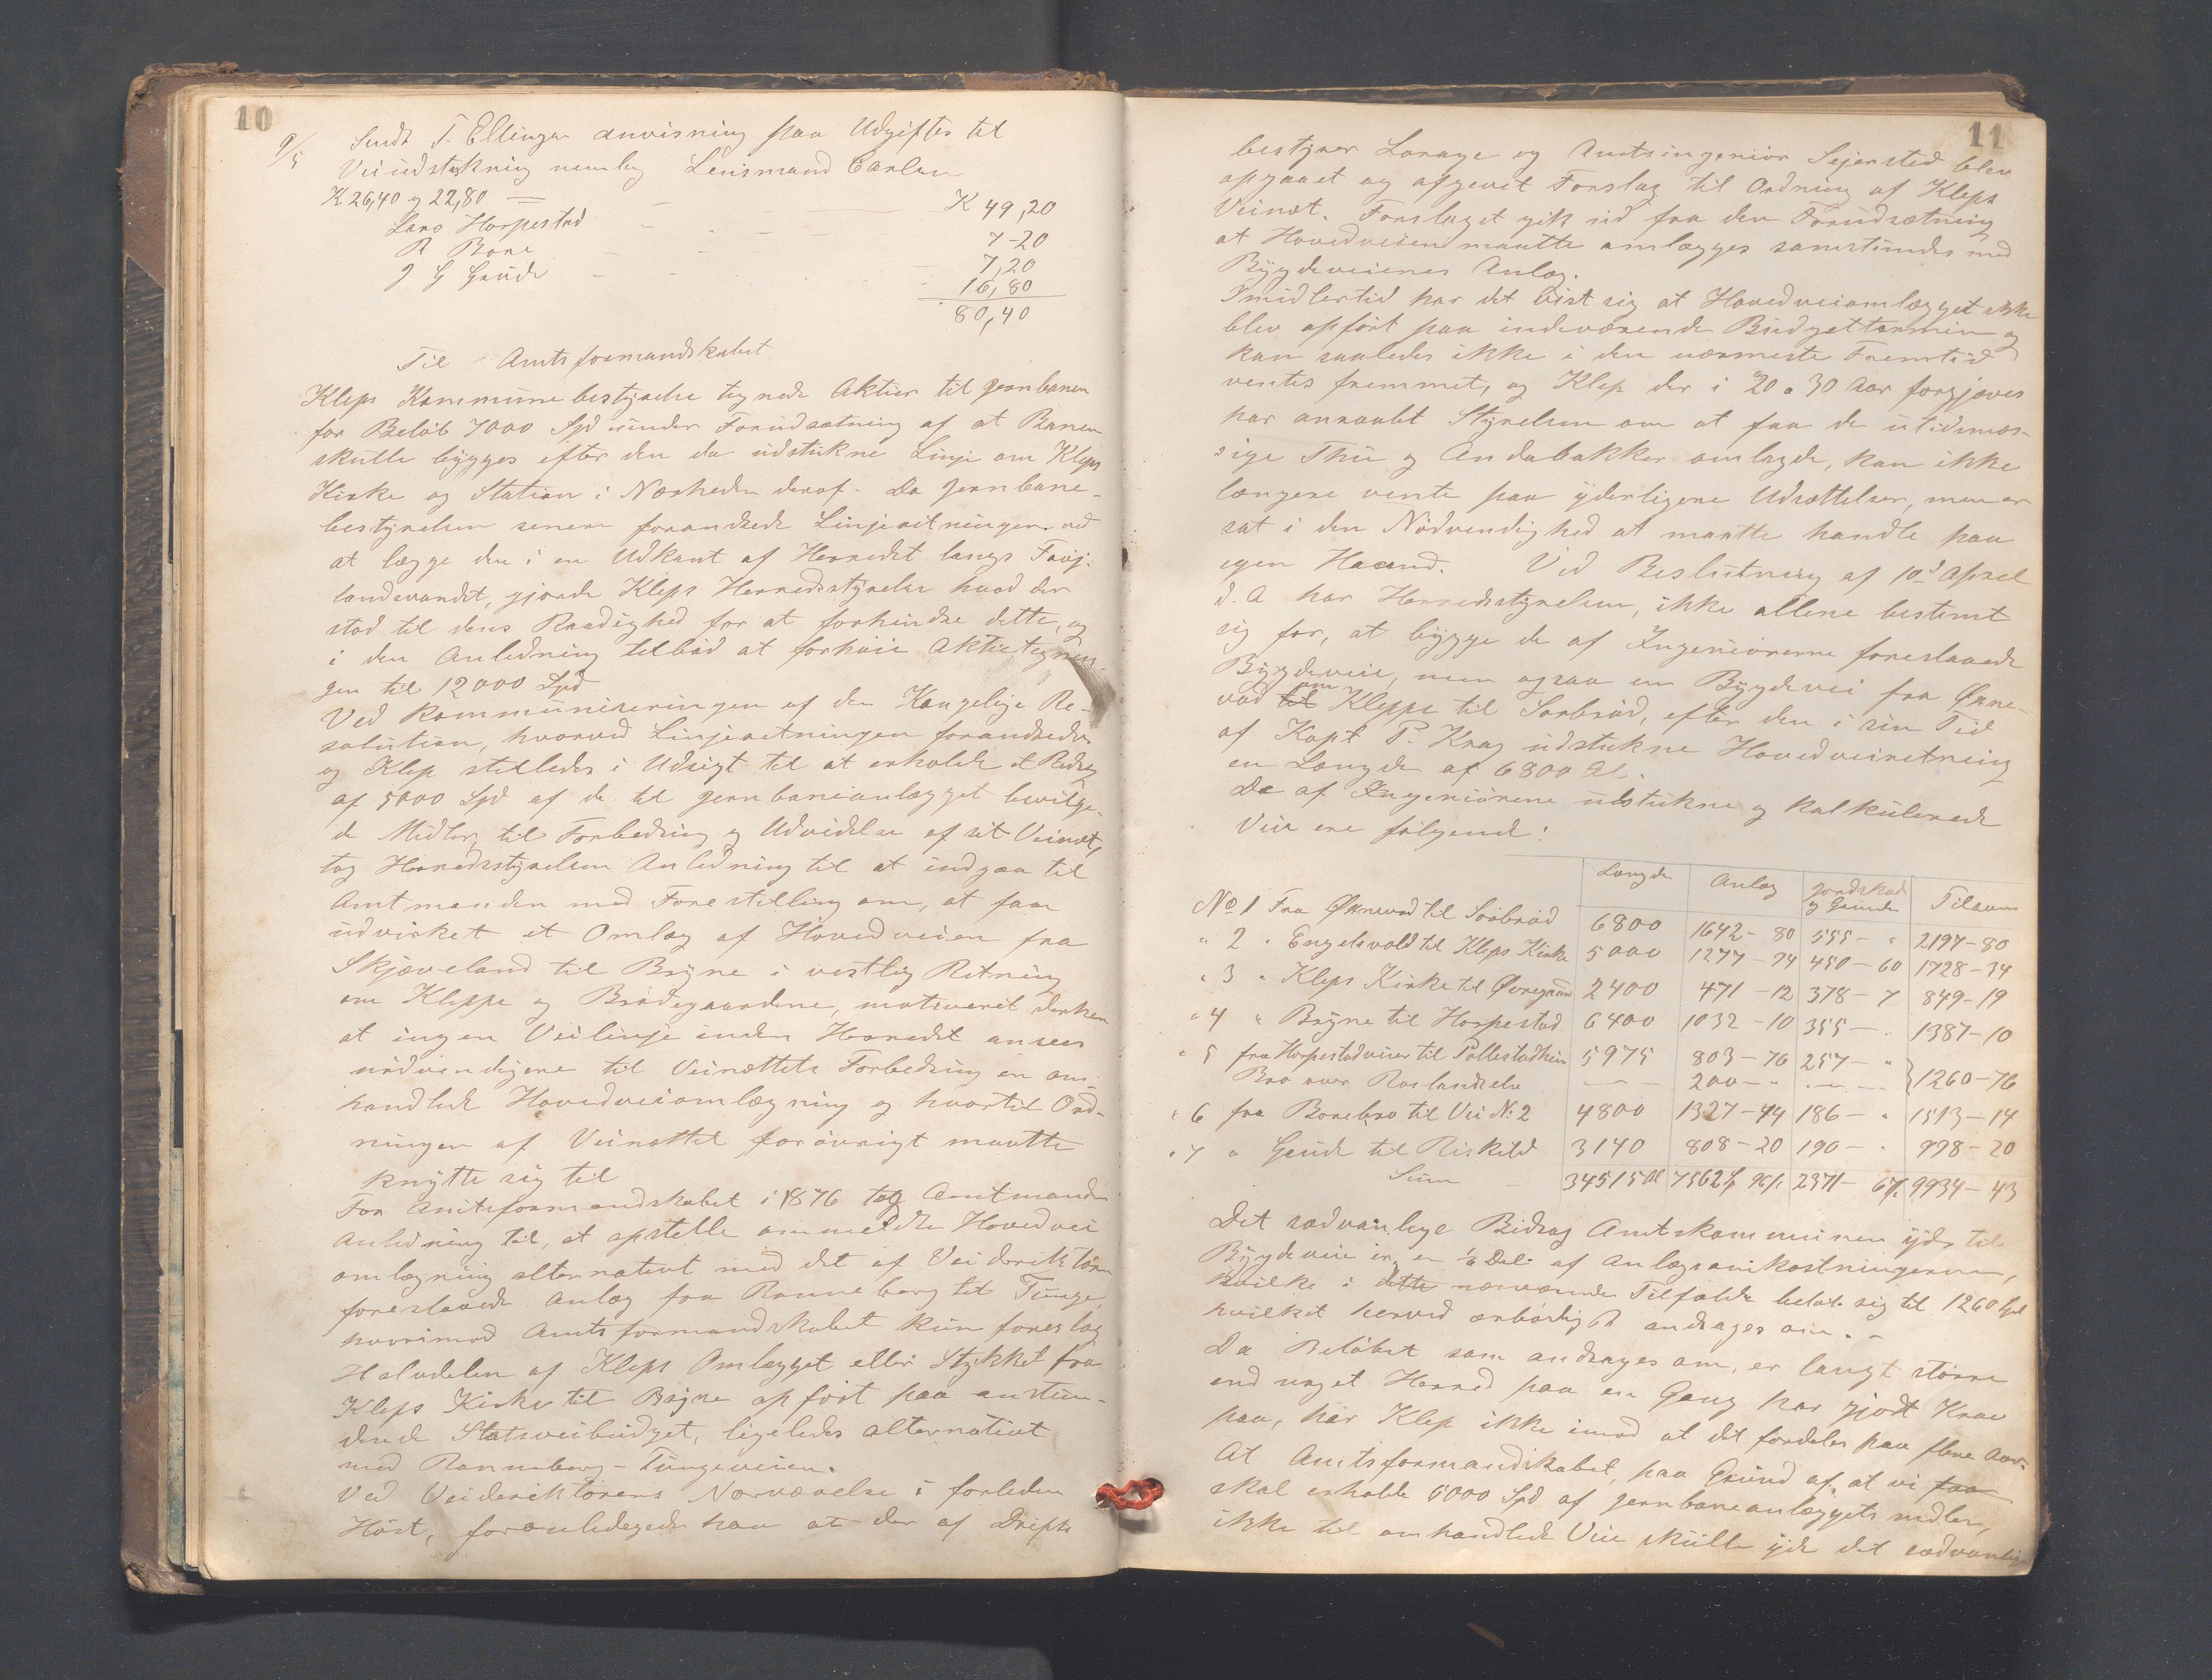 10
9/5 Sendt T. Ellingsen anvisning paa Udgifter til
Veiudstikning nemlig Lensmand Carlsen
K 26,40 og 22,80 = - - K 49,20
Lars Horpestad - - - 7-20
R Bore - - - 7,20
J G Grude - - - 16,80
80,40
Til Amtsformandskabet
Kleps Kommunebestyrelse tegnede Aktier til Jernbanen
for Beløb 7000 Spd under Forudsætning af at Banen
skulle bygges efter den da udstukne Linje om Kleps
Kirke og Station i Nærheden deraf. Da Jernbane-
bestyrelsen senere forandrede Linjeretningen ved
at lægge den i en Udkant af Herredet langs Frøj-
landsvandet, gjorde Kleps Herredsstyrelse hvad der
stod til dens Raadighed for at forhindre dette, og
i den Anledning tilbød at forhøie Aktietegnin-
gen til 12000 Spd
Ved Kommuniseringen af den Kongelige Re-
solution, hvorved Linjeretningen forandredes
og Klep stilledes i Udsigt til at erholde et Bidrag
af 5000 Spd af de til Jernbaneanlægget bevilge-
de Midler til Forbedring og Udvidelse af sit Veinæt,
tog Herredsstyrelsen Anledning til at indgaa til
Amtmanden med Forestilling om, at faa
udvirket et Omlæg af Hovedveien fra
Skjæveland til Bryne i vestlig Retning
om Kleppe og Brødegaardene, motiveret derhen
at ingen Veilinje inden Herredet ansees
nødvendigere til Veinættets Forbedring en om-
handlede Hovedveiomlægning og hvortil Ord-
ningen af Veinættet forøvrigt maatte
knytte sig til
For Amtsformandskabet i 1876 tog Amtmanden
Anledning til, at opstille ommeldte Hovedvei
omlægning alternativt med det af Veidirektøren
foreslaaede Anlæg fra Ranneberg til Tunge,
hvorimod Amtsformandskabet kun foreslog
Halvdelen af Kleps Omlægget eller Stykket fra
Kleps Kirke til Bryne opført paa anstun-
dende Statsveibudget, ligeledes alternativt
med Ranneberg-Tungeveien.
Ved Veidirektørens Nærværelse i forleden
Høst, foranledigede han at der af Drifts
11
bestyrer Lorange og Amtsingeniør Sejersted blev
opgaaet og afgivet Forslag til Ordning af Kleps
Veinæt. Forslaget gik ud fra den Forudsætning
at Hovedveien maatte omlægges samstundes med
Bygdeveienes Anlæg.
Imidlertid har det vist sig at Hovedveiomlægget ikke
blev opført paa indeværende Budgettermin og
kan saaledes ikke i den nærmeste Fremtid
ventes fremmet, og Klep der i 20 a 30 Aar forgjæves
har anraabt Styrelsen om at faa de utidsmæs-
sige Thu og Andabakker omlagde, kan ikke
længere vente paa yderligere Udsættelser, men er
sat i den Nødvendighed at maatte handle paa
egen Haand. Ved Beslutning af 10d April
d. A har Herredsstyrelsen, ikke allene bestemt
sig for, at bygge de af Ingeniørerne foreslaaede
Bygdeveie, men ogsaa en Bygdevei fra Øxne-
vad til om Kleppe til Sørbrød, efter den i sin Tid
af Kapt P. Krag udstukne Hovedveiretning
en Længde af 6800 Al.
De af Ingeniørene udstukne og kalkulerede
Veie ere følgende:
Længde Anlæg Jordskade og Grunde Tilsam
No 1 Fra Øxnevad til Sørbrød 6800 1642-80 555- " 2197-80
" 2 " Engelsvold til Kleps Kirke 5000 1277-74 450-60 1728-34
" 3 " Kleps Kirke til Øvregaard 2400 471-12 378-7 849-19
" 4 " Bryne til Horpestad 6400 1032-10 355- " 1387-10
" 5 fra Horpestadveien til Pollestadheien 5975 803-76 257- "
Bro over Roslandselv - - 200- " - - 1260-76
" 6 fra Borebro til Vei N: 2 4800 1327-44 186- " 1513-14
" 7 " Grude til Riskild 3140 808-20 190- " 998-20
Sum - 34515 Al 7562 Sp 96/ 2371- 67/ 9934-43
Det sædvanlige Bidrag Amtskommunen yder til
Bygdeveie er en 1/8 Del af Anlægsomkostningerne,
hvilke i dette nærværende Tilfælde beløb sig til 1260 Spd
hvilket herved ærbødigst andrages om. -
Da Beløbet som andrages om, er langt større
end noget Herred paa en Gang har gjort Krav
paa, har Klep ikke imod at det fordeles paa flere Aar.
At Amtsformandskabet, paa Grund af, at vi faa
skal erholde 5000 Spd af Jernbaneanlæggets midler,
ikke til omhandlede Veie skulle yde det sædvanlige